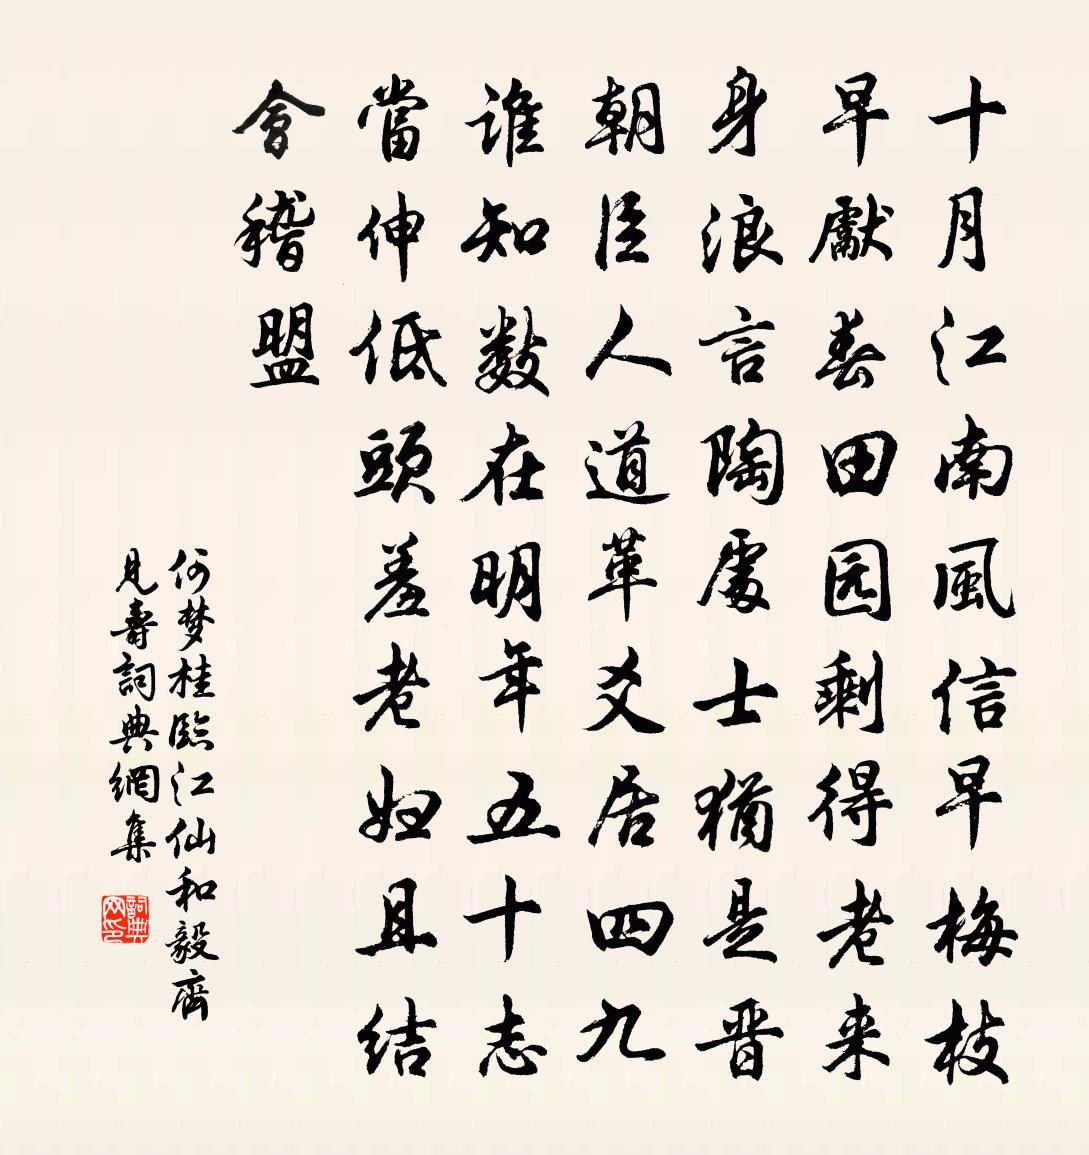 十月江南風信早梅枝
早獻春田园剩得老来
身浪言陶處士猶是晋
朝臣人道革爻居四九
誰知数在明年五十志
當伸低頭羞老妇且结
會稽盟
何梦桂臨江仙和毅齋
見壽詞典網集
詞典網印